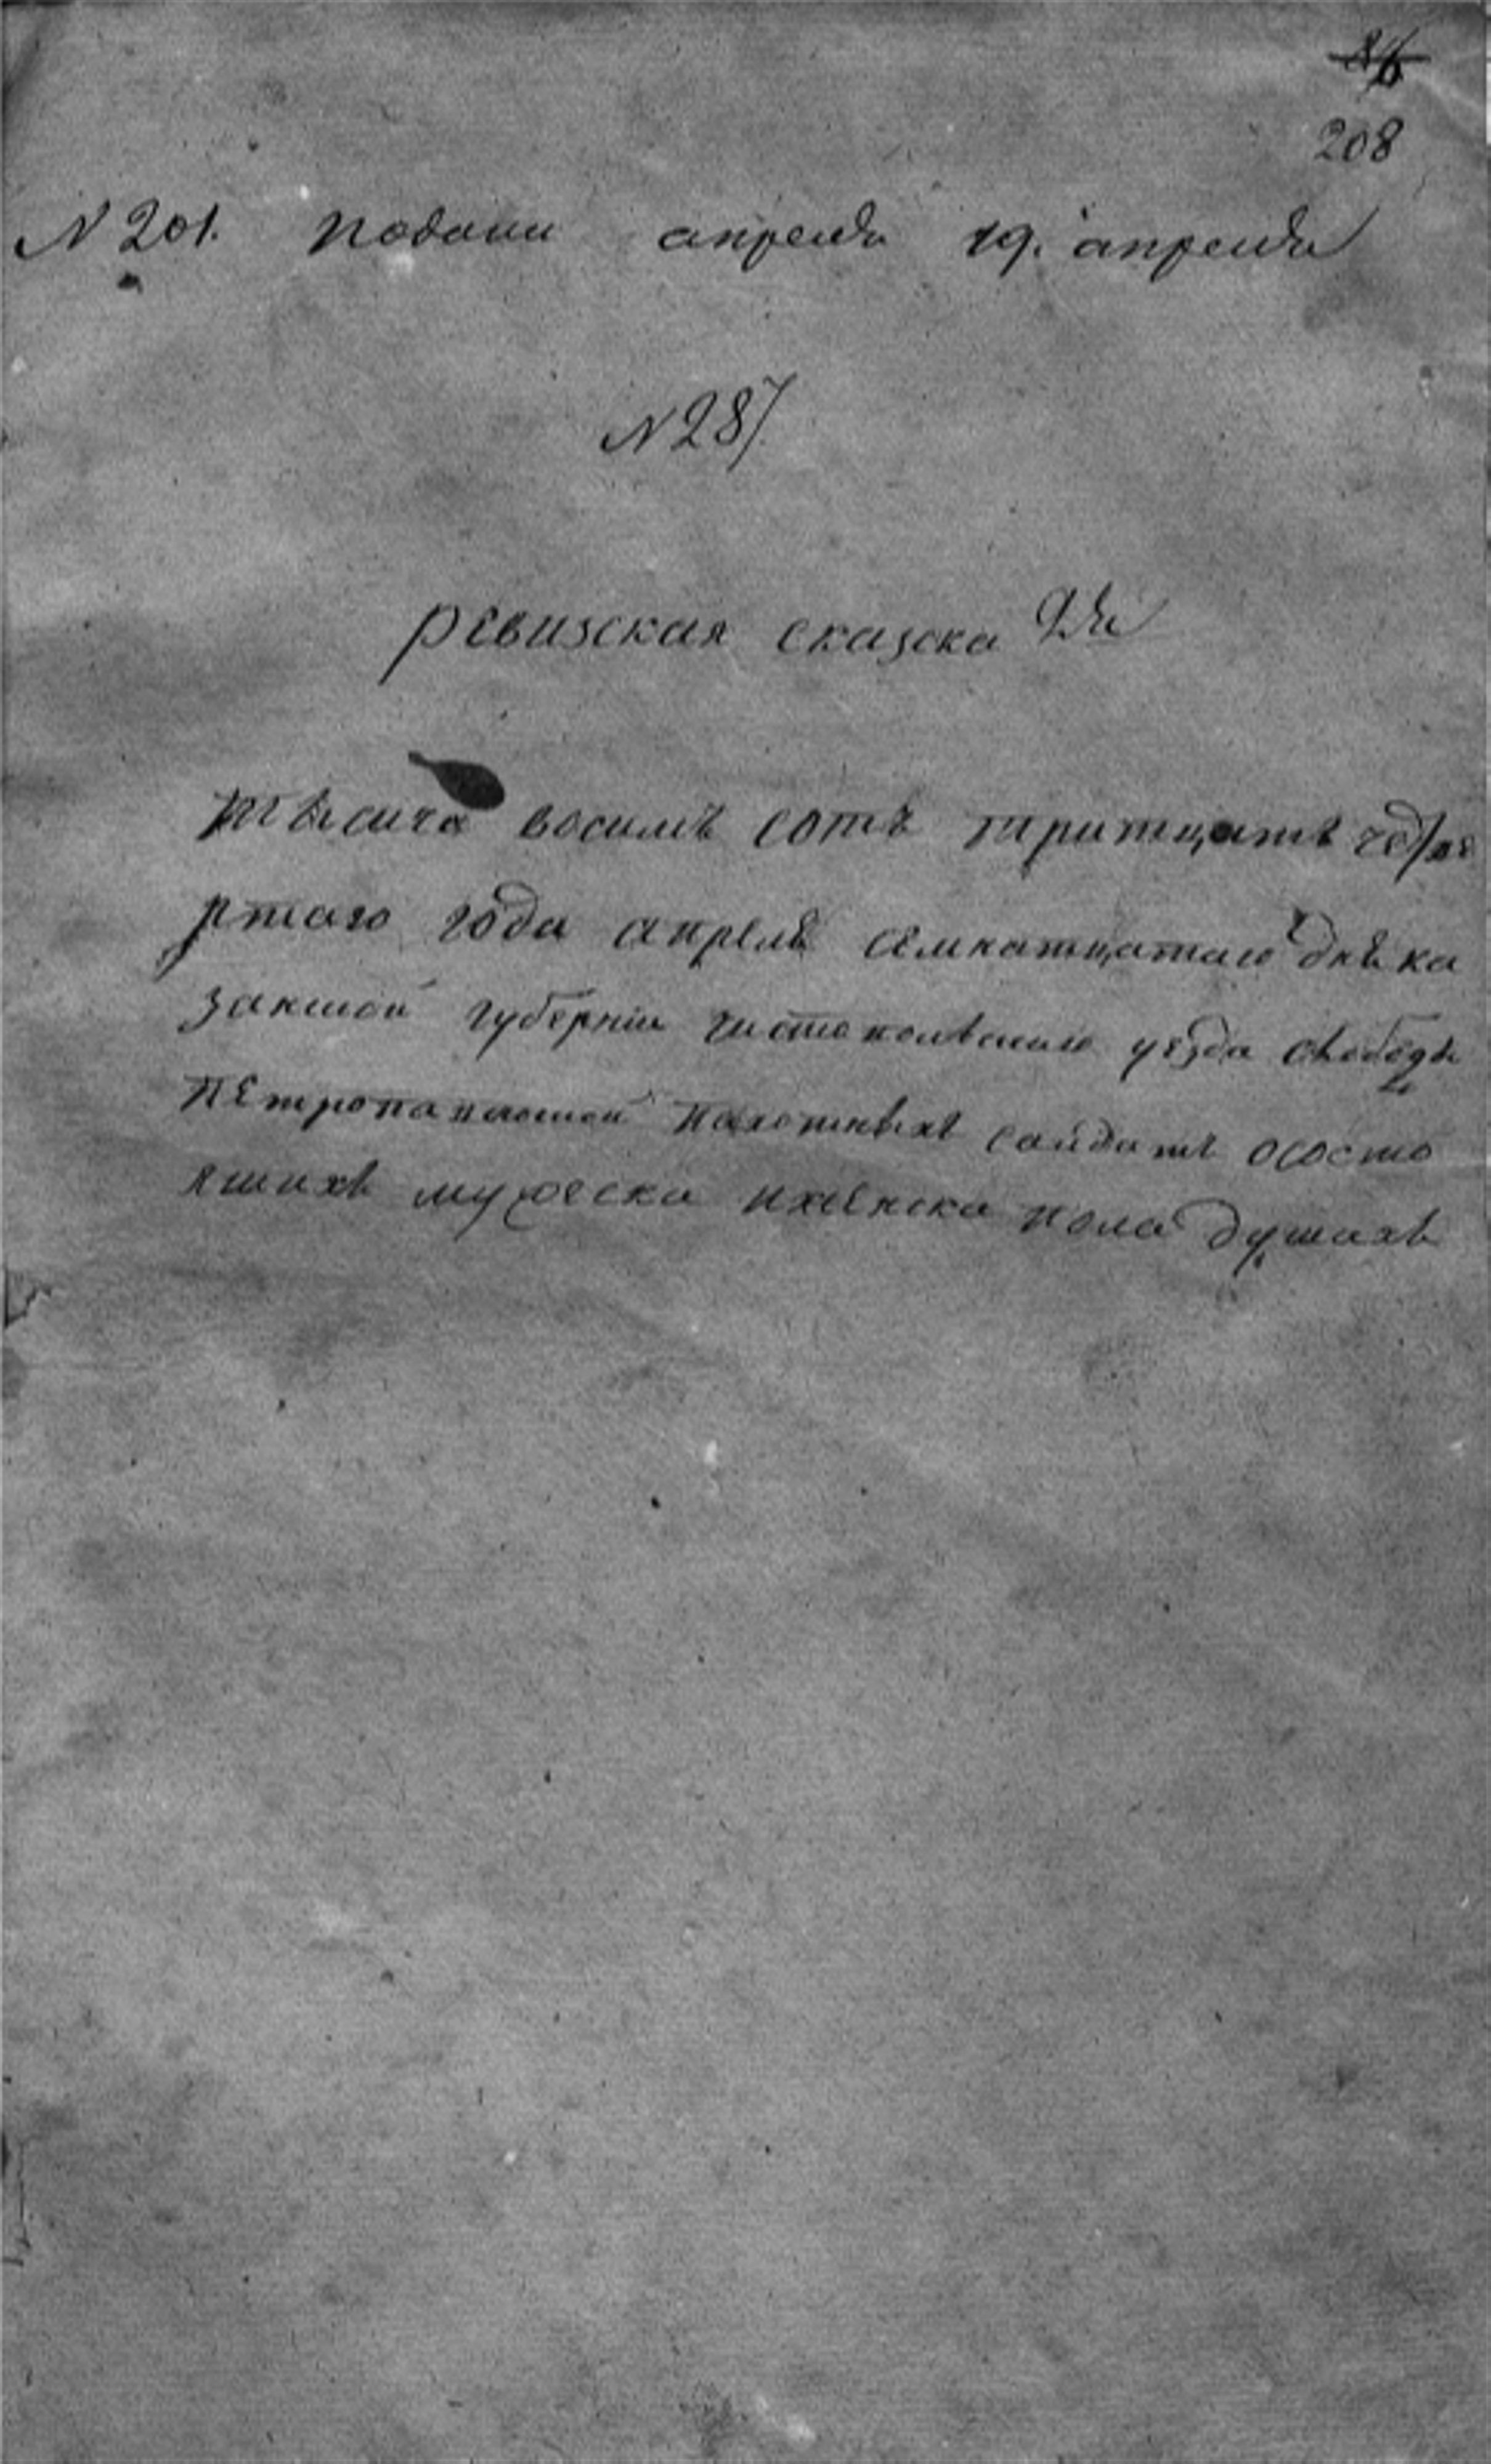 208
N 201. подани апреля 19. апреля
N 287
ревизская сказска
тысича восимъ сотъ тритцать четве
ртаго года апреля семнатцатаго дня ка
занской губернiи чистопольскаго уезда слободы
петропавлоской пахотныхъ салдатъ ососто
яшихъ мужеска ихенска пола душахъ